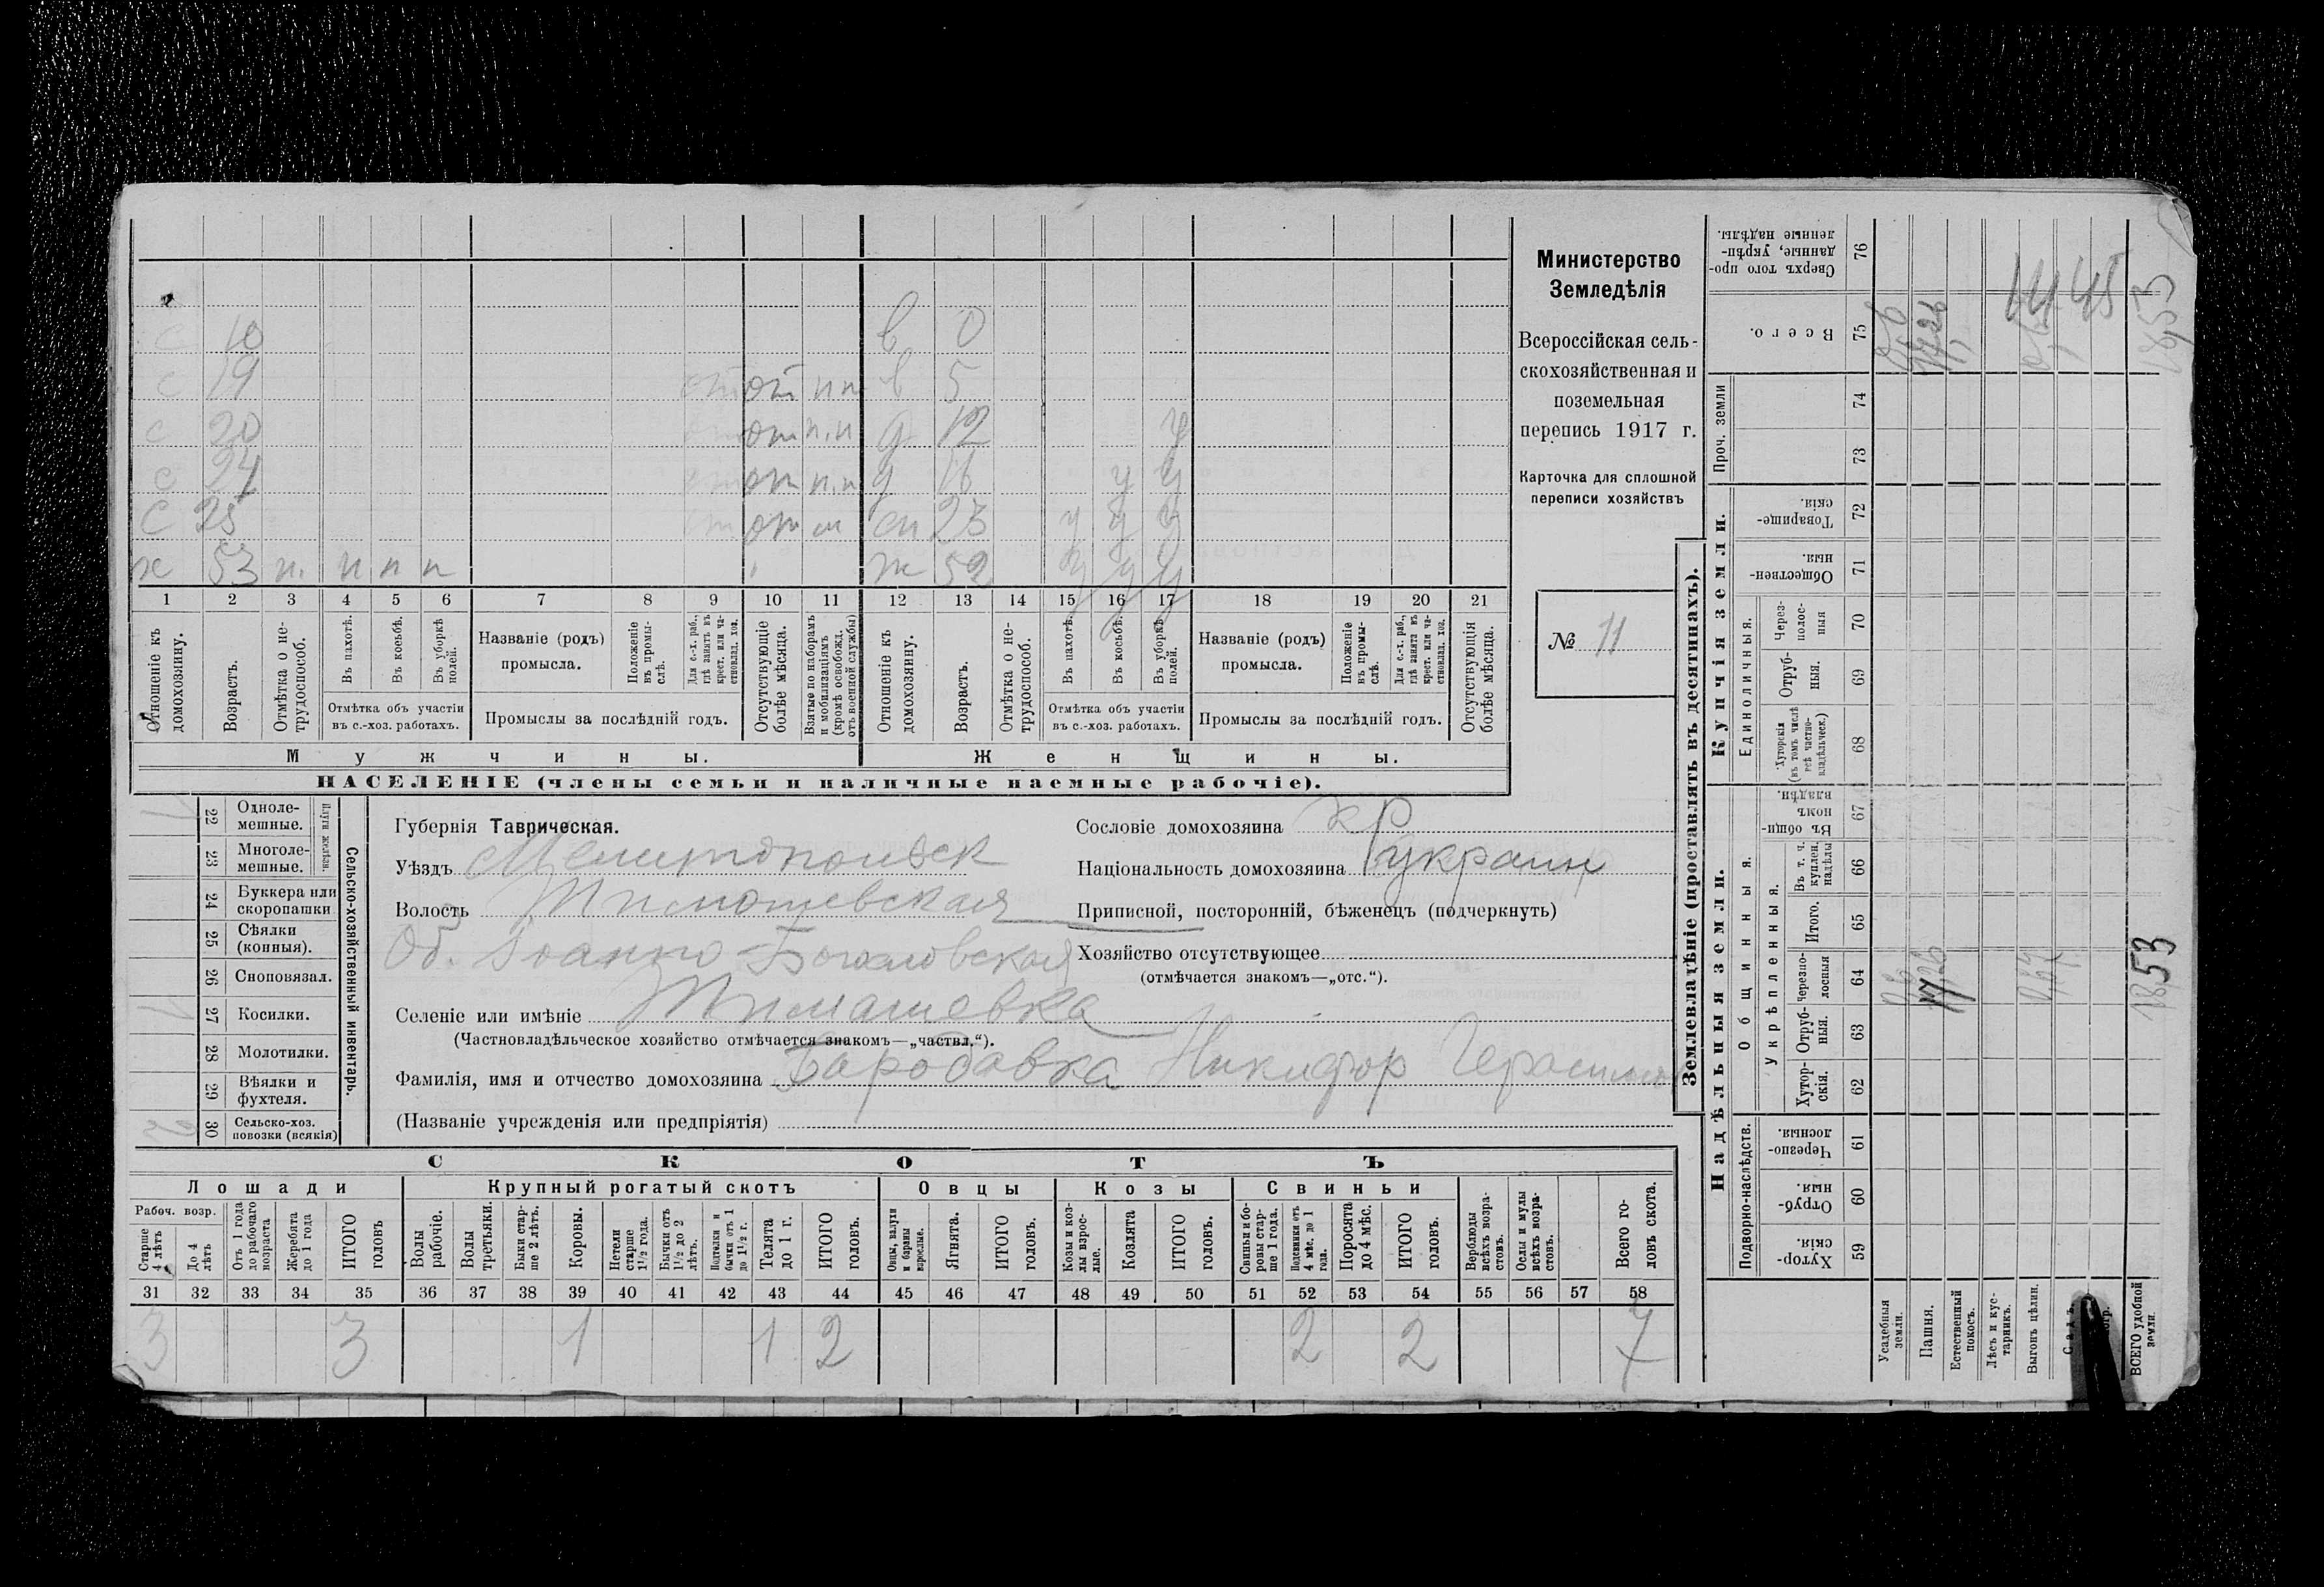 с 10 в 0
с 19 от пп в 5
с 20 от п.п д 12 у
с 24 от п.п д 16 у у
с 25 от сн 23 у у у
х 53 п. п п п ж 52 у у у
1 2 3 4 5 6 7 8 9 10 11 12 13 14 15 16 17 18 19 20 21
Отношеніе къ домохозяину.
Возрастъ.
Отмѣтка о не-трудоспособ.
Въ пахотѣ.
Въ косьбѣ.
Въ уборкѣ полей.
Отмѣтка объ участіи въ с.-хоз. работахъ.
Названіе (родъ) промысла.
Положеніе въ промы-слѣ.
Для с.-х. раб., гдѣ занятъ въ крест. или ча-стновлад. хоз.
Промыслы за послѣдній годъ.
Отсутствующіе болѣе мѣсяца.
Взятые по наборамъ и мобилизаціямъ (кромѣ освобожд. отъ военной службы)
Отношеніе къ домохозяину.
Возрастъ.
Отмѣтка о не-трудоспособ.
Въ пахотѣ.
Въ косьбѣ.
Въ уборкѣ полей.
Отмѣтка объ участіи въ с.-хоз. работахъ.
Названіе (родъ) промысла.
Положеніе въ промы-слѣ.
Для с.-х. раб., гдѣ занята въ крест. или ча-стновлад. хоз.
Промыслы за послѣдній годъ.
Отсутствующія болѣе мѣсяца.
Мужчины. Женщины.
НАСЕЛЕНІЕ (члены семьи и наличные наемные рабочіе).
Министерство
Земледѣлія
Всероссійская сель-
скохозяйственная и
поземельная
перепись 1917 г.
Карточка для сплошной
переписи хозяйствъ
№ 11
Сельско-хозяйственный инвентарь.
Плуги желѣзн.
22 Одноле-мешные. 1
23 Многоле-мешные.
24 Буккера или скоропашки
25 Сѣялки (конныя).
26 Сноповязал.
27 Косилки. 1
28 Молотилки.
29 Вѣялки и фухтеля.
30 Сельско-хоз. повозки (всякія)
Губернія Таврическая.
Уѣздъ Мелитопольск
Волость Тимошевская
Об. Іоанно-Богословская
Селеніе или имѣніе Тимашевка
(Частновладѣльческое хозяйство отмѣчается знакомъ—„частвл.“).
Фамилія, имя и отчество домохозяина Бародавка Никифор Герасимов
(Названіе учрежденія или предпріятія)
Сословіе домохозяина кр
Національность домохозяина украин
Приписной, посторонній, бѣженецъ (подчеркнуть)
Хозяйство отсутствующее
(отмѣчается знакомъ—„отс.“).
СКОТЪ
Лошади Крупный рогатый скотъ Овцы Козы Свиньи
Рабоч. возр.
Старше 4 лѣтъ
До 4 лѣтъ
Отъ 1 года до рабочаго возраста
Жеребята до 1 года
ИТОГО головъ
Волы рабочіе.
Волы третьяки.
Быки стар-ше 2 лѣтъ.
Коровы.
Нетели старше 1½ года.
Бычки отъ 1½ до 2 лѣтъ.
Подтелки и бычки отъ 1 до 1½ г.
Телята до 1 г.
ИТОГО головъ.
Овцы, валухи и бараны взрослые.
Ягнята.
ИТОГО головъ.
Козы и коз-лы взрос-лые.
Козлята
ИТОГО головъ.
Свиньи и бо-ровы стар-ше 1 года.
Подсвинки отъ 4 мѣс. до 1 года.
Поросята до 4 мѣс.
ИТОГО головъ.
Верблюды всѣхъ возра-стовъ.
Ослы и мулы всѣхъ возра-стовъ.
Всего го-ловъ скота.
31 32 33 34 35 36 37 38 39 40 41 42 43 44 45 46 47 48 49 50 51 52 53 54 55 56 57 58
3 3 1 1 2 2 2 7
Землевладѣніе (проставлять въ десятинахъ).
Надѣльныя земли. Купчія земли.
Подворно-наслѣдств.
Общинныя.
Укрѣпленныя.
Единоличныя.
Проч. земли
Хутор-скія. 59
Отруб-ныя. 60
Черезпо-лосныя. 61
Хутор-скія. 62
Отруб-ныя. 63
Черезпо-лосныя 64
Итого. 65
Въ т. ч. куплен. надѣлы 66
Въ общи-номъ владѣн. 67
Хуторскія (въ томъ числѣ всѣ частно-владѣльческ.) 68
Отруб-ныя. 69
Через-полос-ныя 70
Обществен-ныя. 71
Товарище-скія. 72
73
74
Всего. 75
Сверхъ того про-данные, укрѣп-ленные надѣлы. 76
Усадебныя земли.
Пашня. 17,26 17,26
Естественный покосъ.
Лѣсъ и кус-тарникъ.
Выгонъ цѣлин. 0,67
Садъ.
ВСЕГО удобной земли. 18,53 18,53
14,45